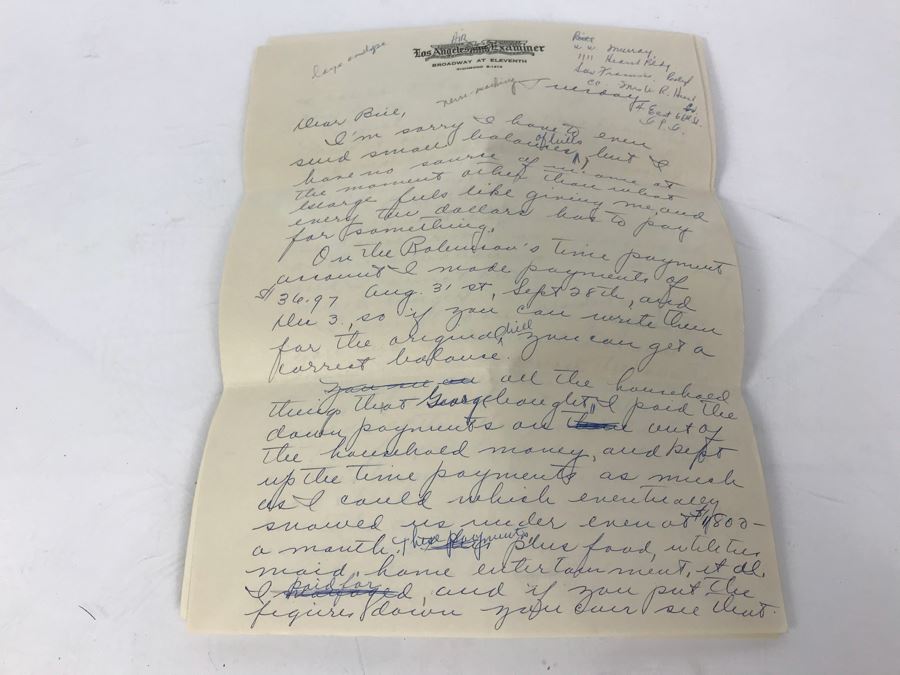 AIR
large envelope
Los Angeles Examiner
BROADWAY AT ELEVENTH
Murray,
1111 Hearst Bldg
San Francisco,
cc Mrs W. R. Hearst
4 East 66th St.
Tuesday
Dear Bill,
I'm sorry I have to even
send small balances of bills, but I
have no source of income at
the moment other than what
George feels like giving me, and
every ten dollars has to pay
for something.
On the Robinson's time payment
account I made payments of
$36.97 Aug. 31st, Sept 28th, and
Dec 3, so if you can write them
for the original bill you can get a
correct balance.
You see on all the household
things that George bought, I paid the
down payments on them out of
the household money, and kept
up the time payments as much
as I could which eventually
snowed us under even at $1800-
a month. These payments plus food, utilities
maid, home entertainment, et al.
I paid for, and if you put the
figures down you can see that.